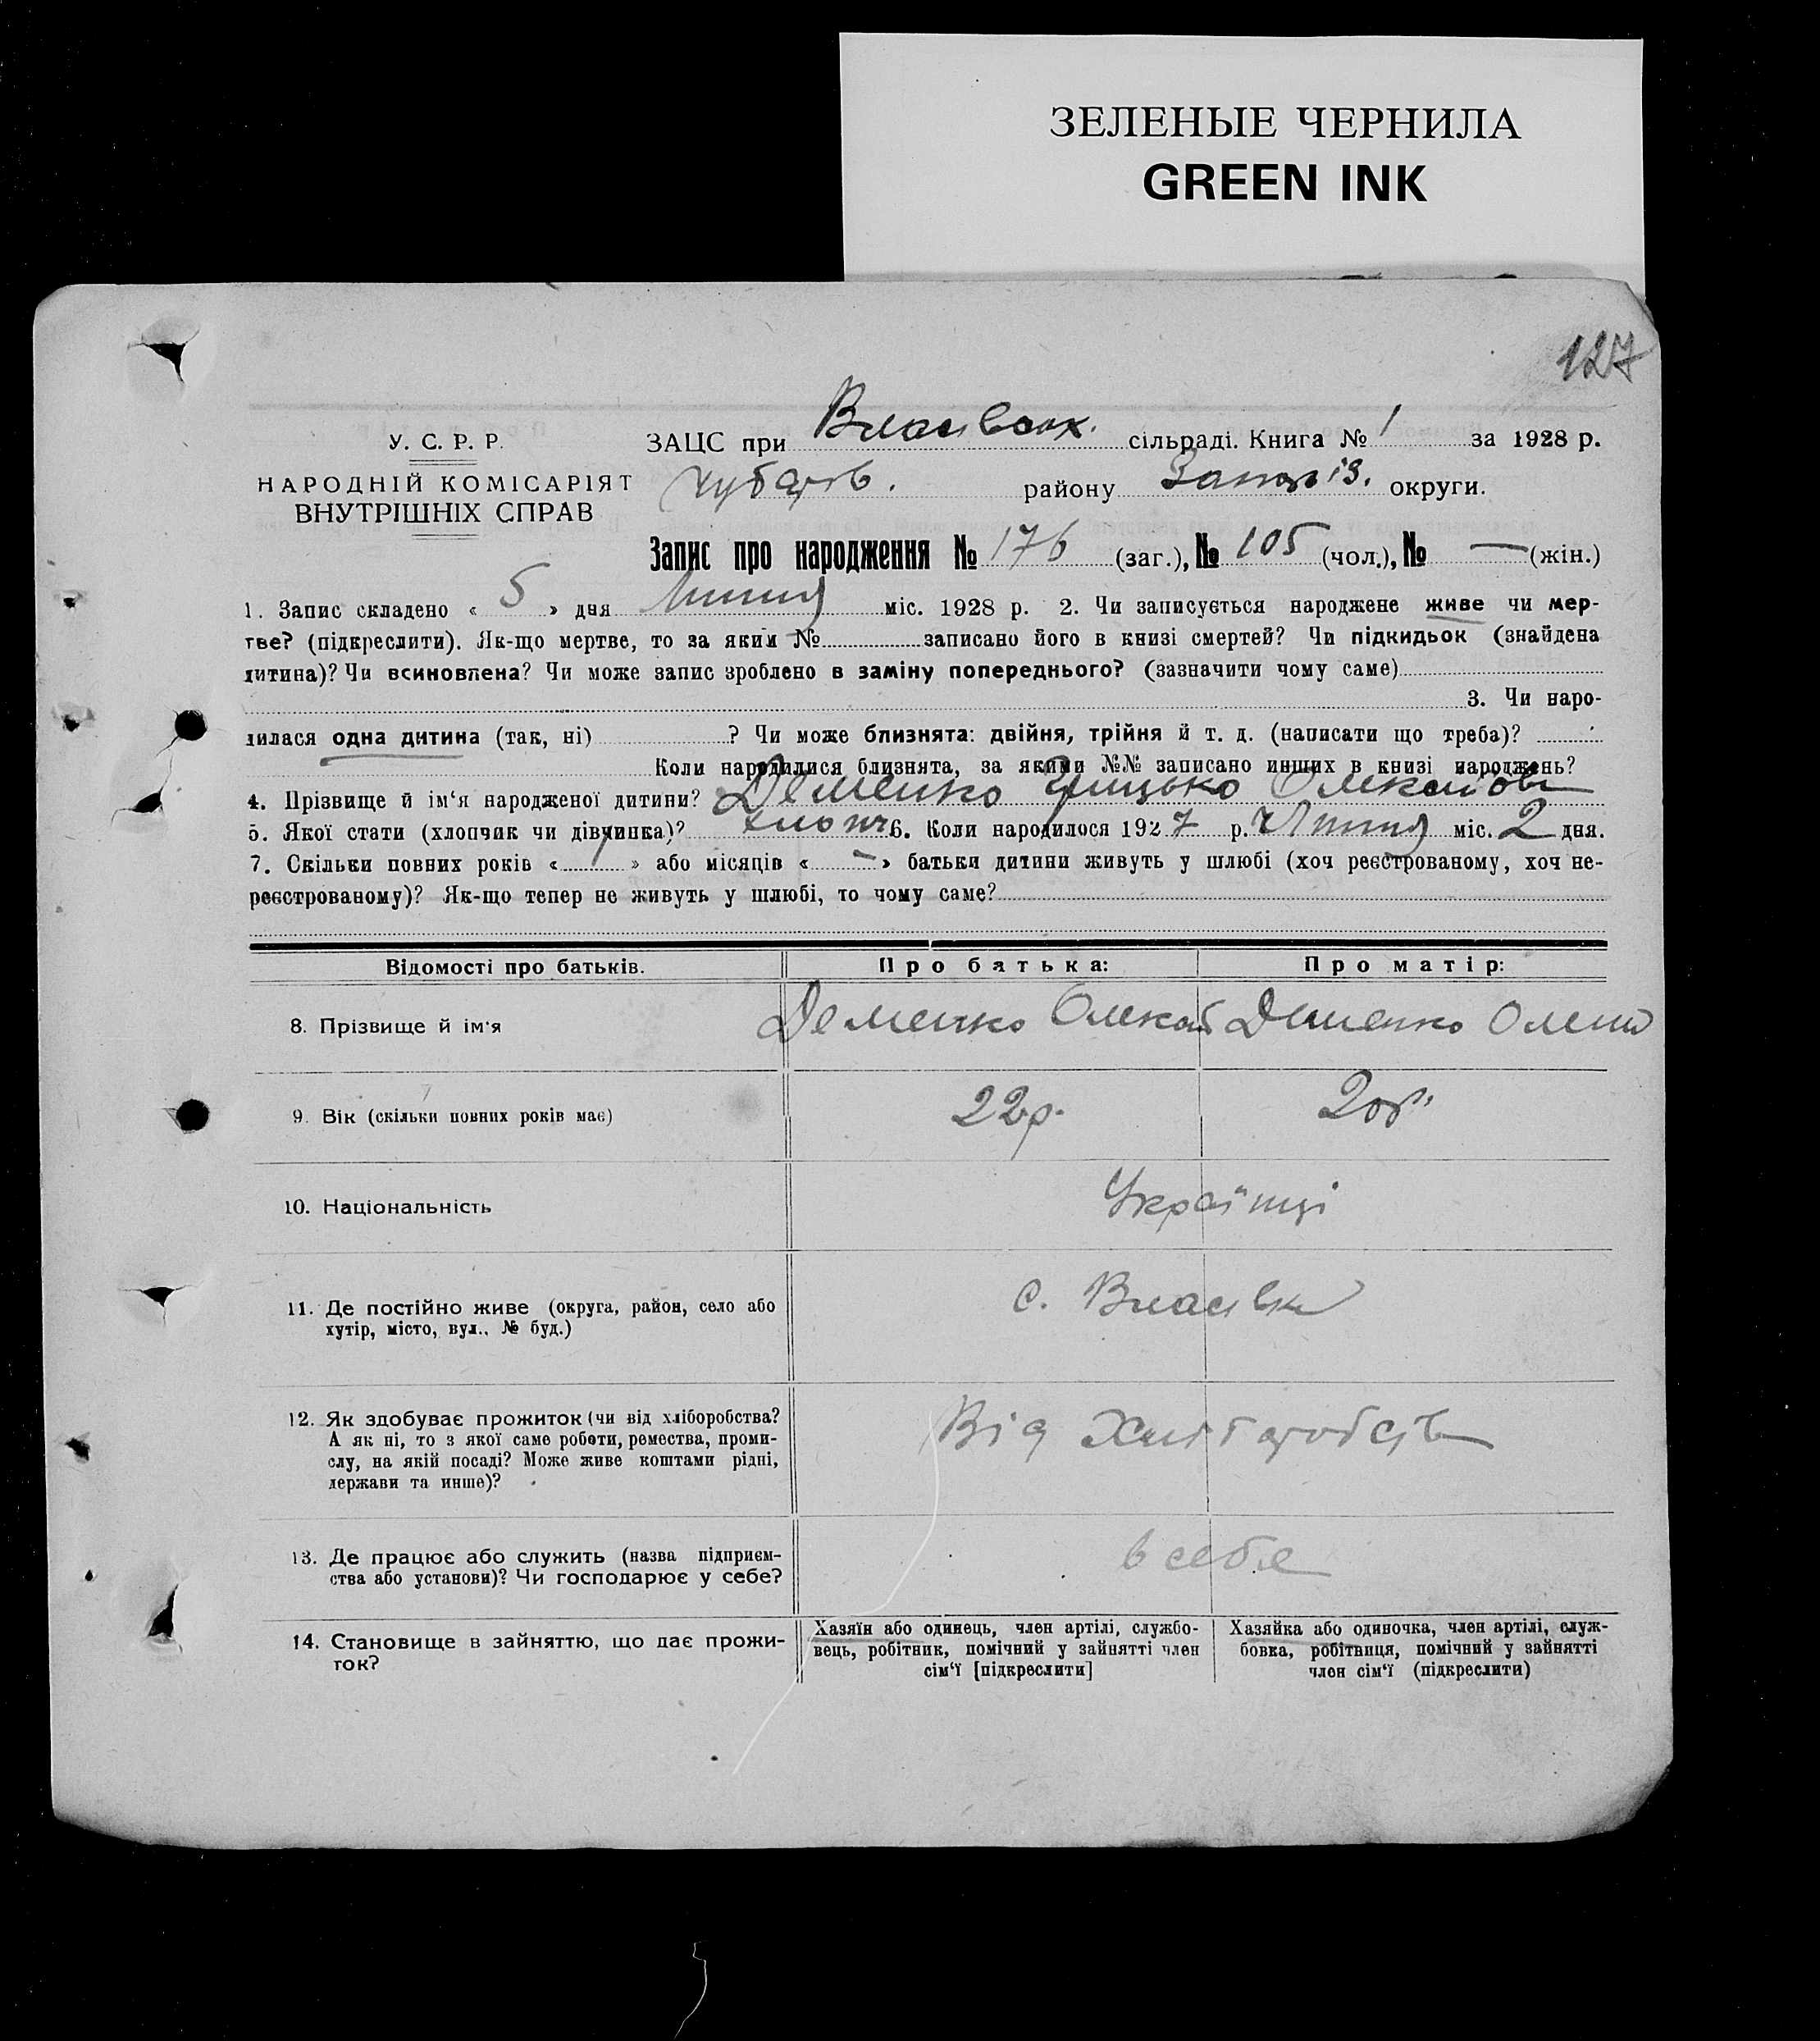 ЗЕЛЕНЫЕ ЧЕРНИЛА
GREEN INK
127
У. С. Р. Р.
НАРОДНІЙ КОМІСАРІЯТ
ВНУТРІШНІХ СПРАВ
ЗАЦС при сільраді. Книга № 1 за 1928 р.
району Запоріз. округи.
Запис про народження № 176 (заг.), № 105 (чол.), № — (жін.)
1. Запис складено « 5 » дня Липня міс. 1928 р. 2. Чи записується народжене живе чи мер-
тве? (підкреслити). Як-що мертве, то за яким № записано його в книзі смертей? Чи підкидьок (знайдена
дитина)? Чи всиновлена? Чи може запис зроблено в заміну попереднього? (зазначити чому саме)
3. Чи наро-
дилася одна дитина (так, ні) ? Чи може близнята: двійня, трійня й т. д. (написати що треба)?
Коли народилися близнята, за якими №№ записано инших в книзі народжень?
4. Прізвище й ім‘я народженої дитини? Деменко Грицько
5. Якої стати (хлопчик чи дівчинка)? хлопч. 6. Коли народилося 1927 р. Липня міс. 2 дня.
7. Скільки повних років « » або місяців « – » батьки дитини живуть у шлюбі (хоч реєстрованому, хоч не-
реєстрованому)? Як-що тепер не живуть у шлюбі, то чому саме?
Відомості про батьків. Про батька: Про матір:
8. Прізвище й ім‘я Деменко Деменко Олена
9. Вік (скільки повних років має) 22р. 20р.
10. Національність Українці
11. Де постійно живе (округа, район, село або
хутір, місто, вул., № буд.)
с. Власівка
12. Як здобуває прожиток (чи від хліборобства?
А як ні, то з якої саме роботи, ремества, проми-
слу, на якій посаді? Може живе коштами рідні,
держави та инше)?
Від Хліборобств
13. Де працює або служить (назва підприєм-
ства або установи)? Чи господарює у себе?
в себе
14. Становище в зайняттю, що дає прожи-
ток?
Хазяїн або одинець, член артілі, службо-
вець, робітник, помічний у зайнятті член
сім‘ї [підкреслити]
Хазяйка або одиночка, член артілі, служ-
бовка, робітниця, помічний у зайнятті
член сім‘ї (підкреслити)